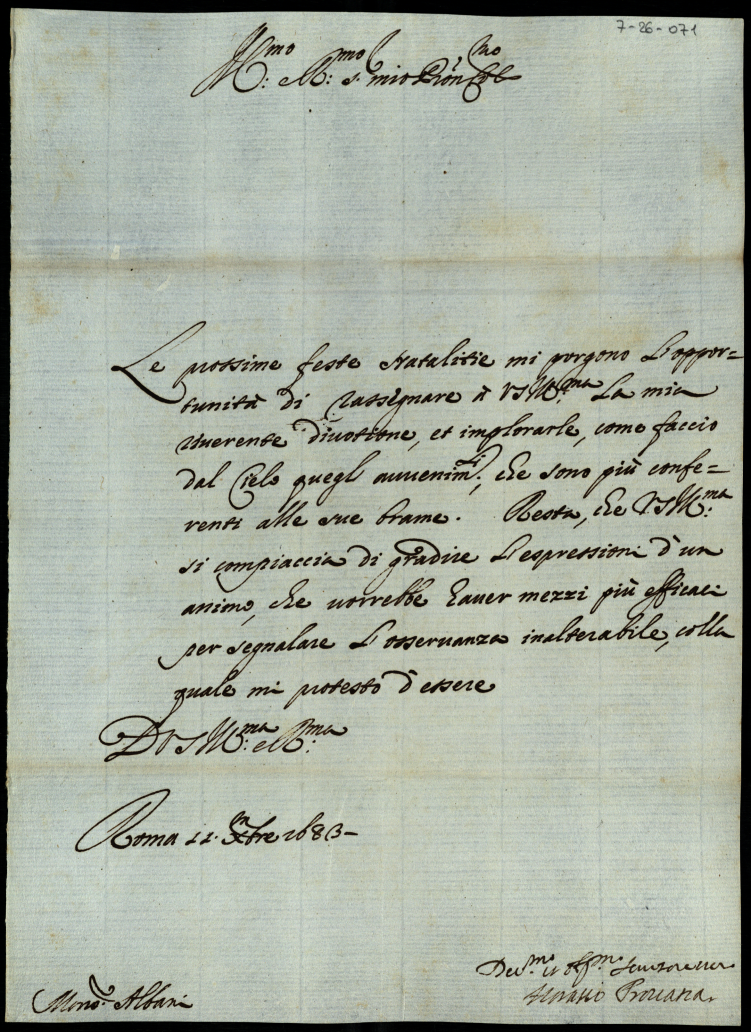 7-26-071
Ill:mo e R:mo S. mio Pron Col:mo
Le prossime feste Natalitie mi porgono l'oppor=
tunità di rassegnare à VS Ill:ma la mia
riverente divotione, et implorarle, come faccio
dal Cielo quegl' avvenim:ti, che sono più confe=
renti alle sue brame. Resta, che VS Ill:ma
si compiaccia di gradire l'espressioni d'un
animo, che vorrebbe haver mezzi più efficaci
per segnalare l'osservanza inalterabile, colla
quale mi protesto d'essere
D VS Ill:ma e R:ma
Roma 11. Xbre 1683-
Mons.r Albani
Dev:mo et Obl:mo Servitore vero
Horatio Provana.